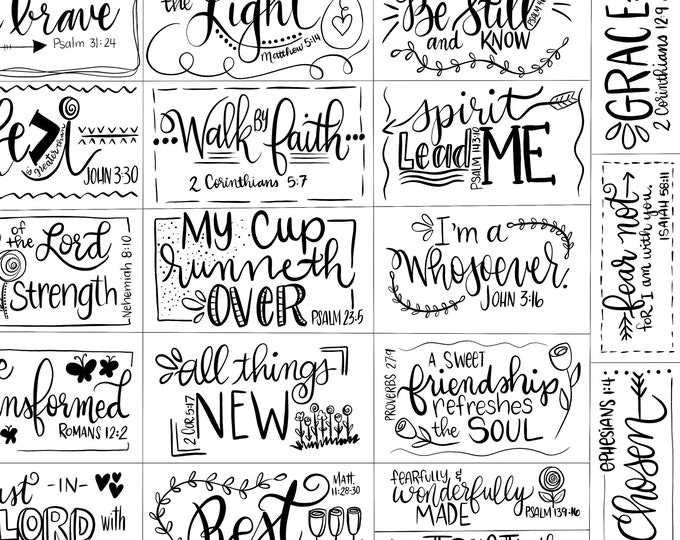 brave
Psalm 31:24
the Light
Matthew 5:14
Be Still
and KNOW
GRACE
2 Corinthians 12:9
he > i
is greater than
JOHN 3:30
Walk BY faith
2 Corinthians 5:7
spirit
Lead ME
fear not
for I am with you.
ISAIAH 58:11
of the Lord
Strength
Nehemiah 8:10
MY CUP
runneth
OVER
PSALM 23:5
I'm a
Whosoever.
JOHN 3:16
ROMANS 12:2
all things
NEW
2 Cor. 5:17
A SWEET
friendship
refreshes
the SOUL
PROVERBS 27:9
EPHESIANS 1:4
Chosen
-IN-
LORD with
Rest
Matt.
11:28-30
fearfully &
wonderfully
MADE
PSALM 139:16